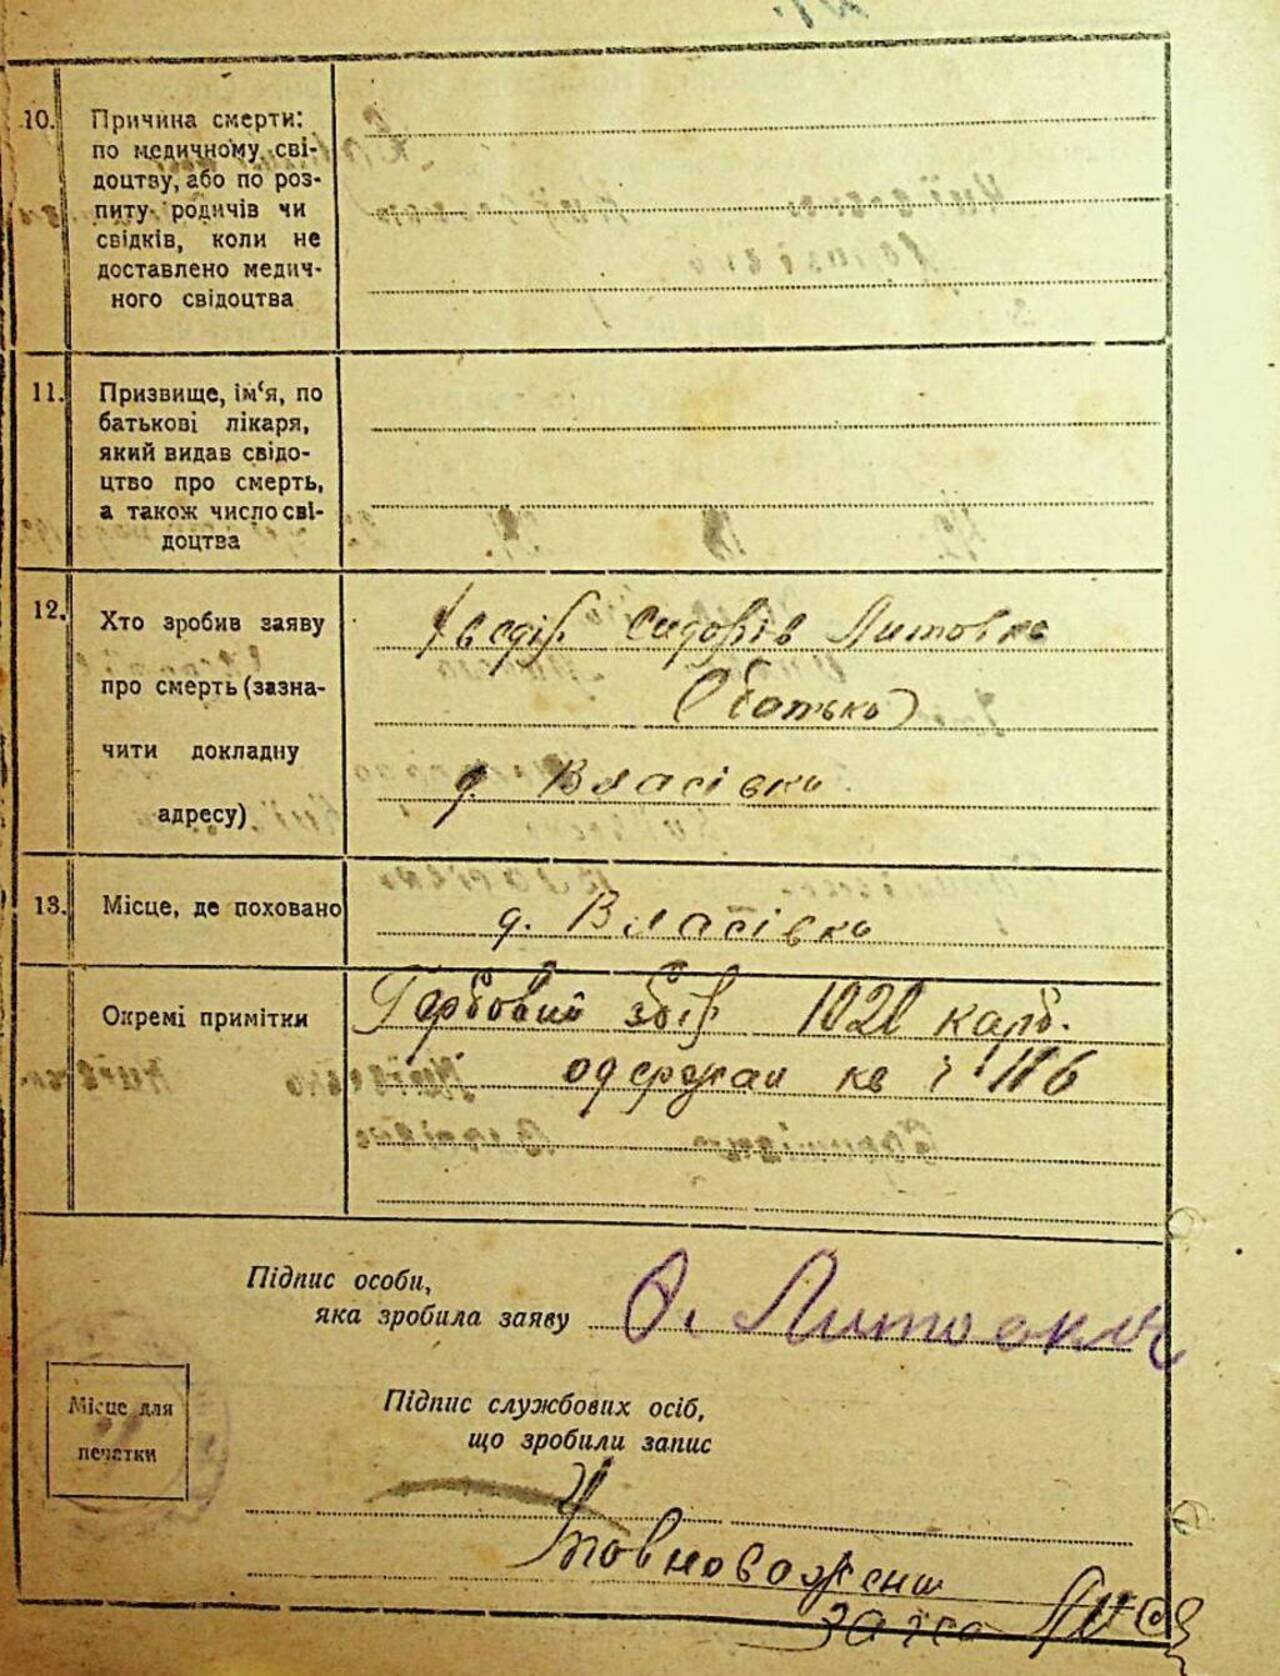 10. Причина смерти:
по медичному сві-
доцтву, або по роз-
питу родичів чи
свідків, коли не
доставлено медич-
ного свідоцтва
11. Призвище, ім‘я, по
батькові лікаря,
який видав свідо-
цтво про смерть,
а також число сві-
доцтва
12. Хто зробив заяву
про смерть (зазна-
чити докладну
адресу)
Сидорів Литовка
(батько)
д. Власівка
13. Місце, де поховано
д. Власівка
Окремі примітки
Гербовий збір 1020 карб.
одержан кв ч 116
Підпис особи,
яка зробила заяву
Литовка
Місце для
печатки
Підпис службових осіб,
що зробили запис
Уповноважени
загса